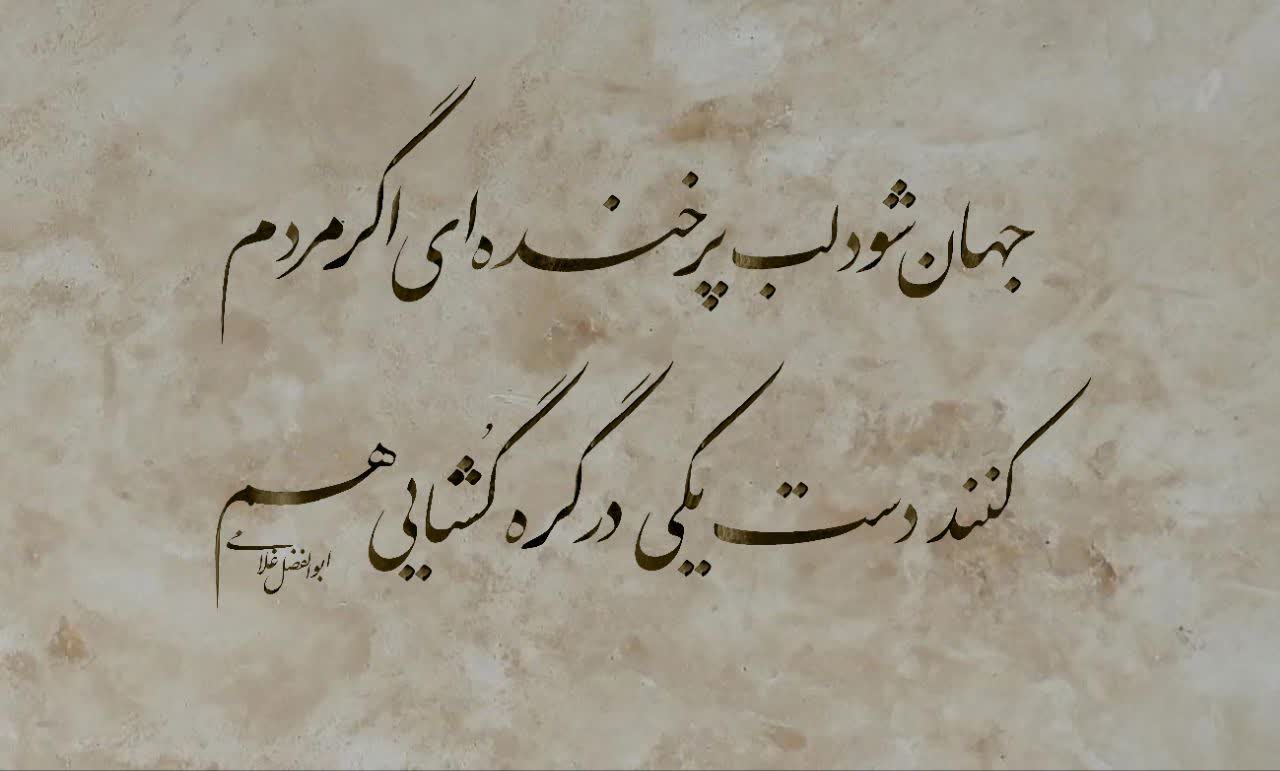 جهان شود لب پر خنده ای اگر مردم
کنند دست یکی در گره گُشایی هم
ابوالفضل غلامی